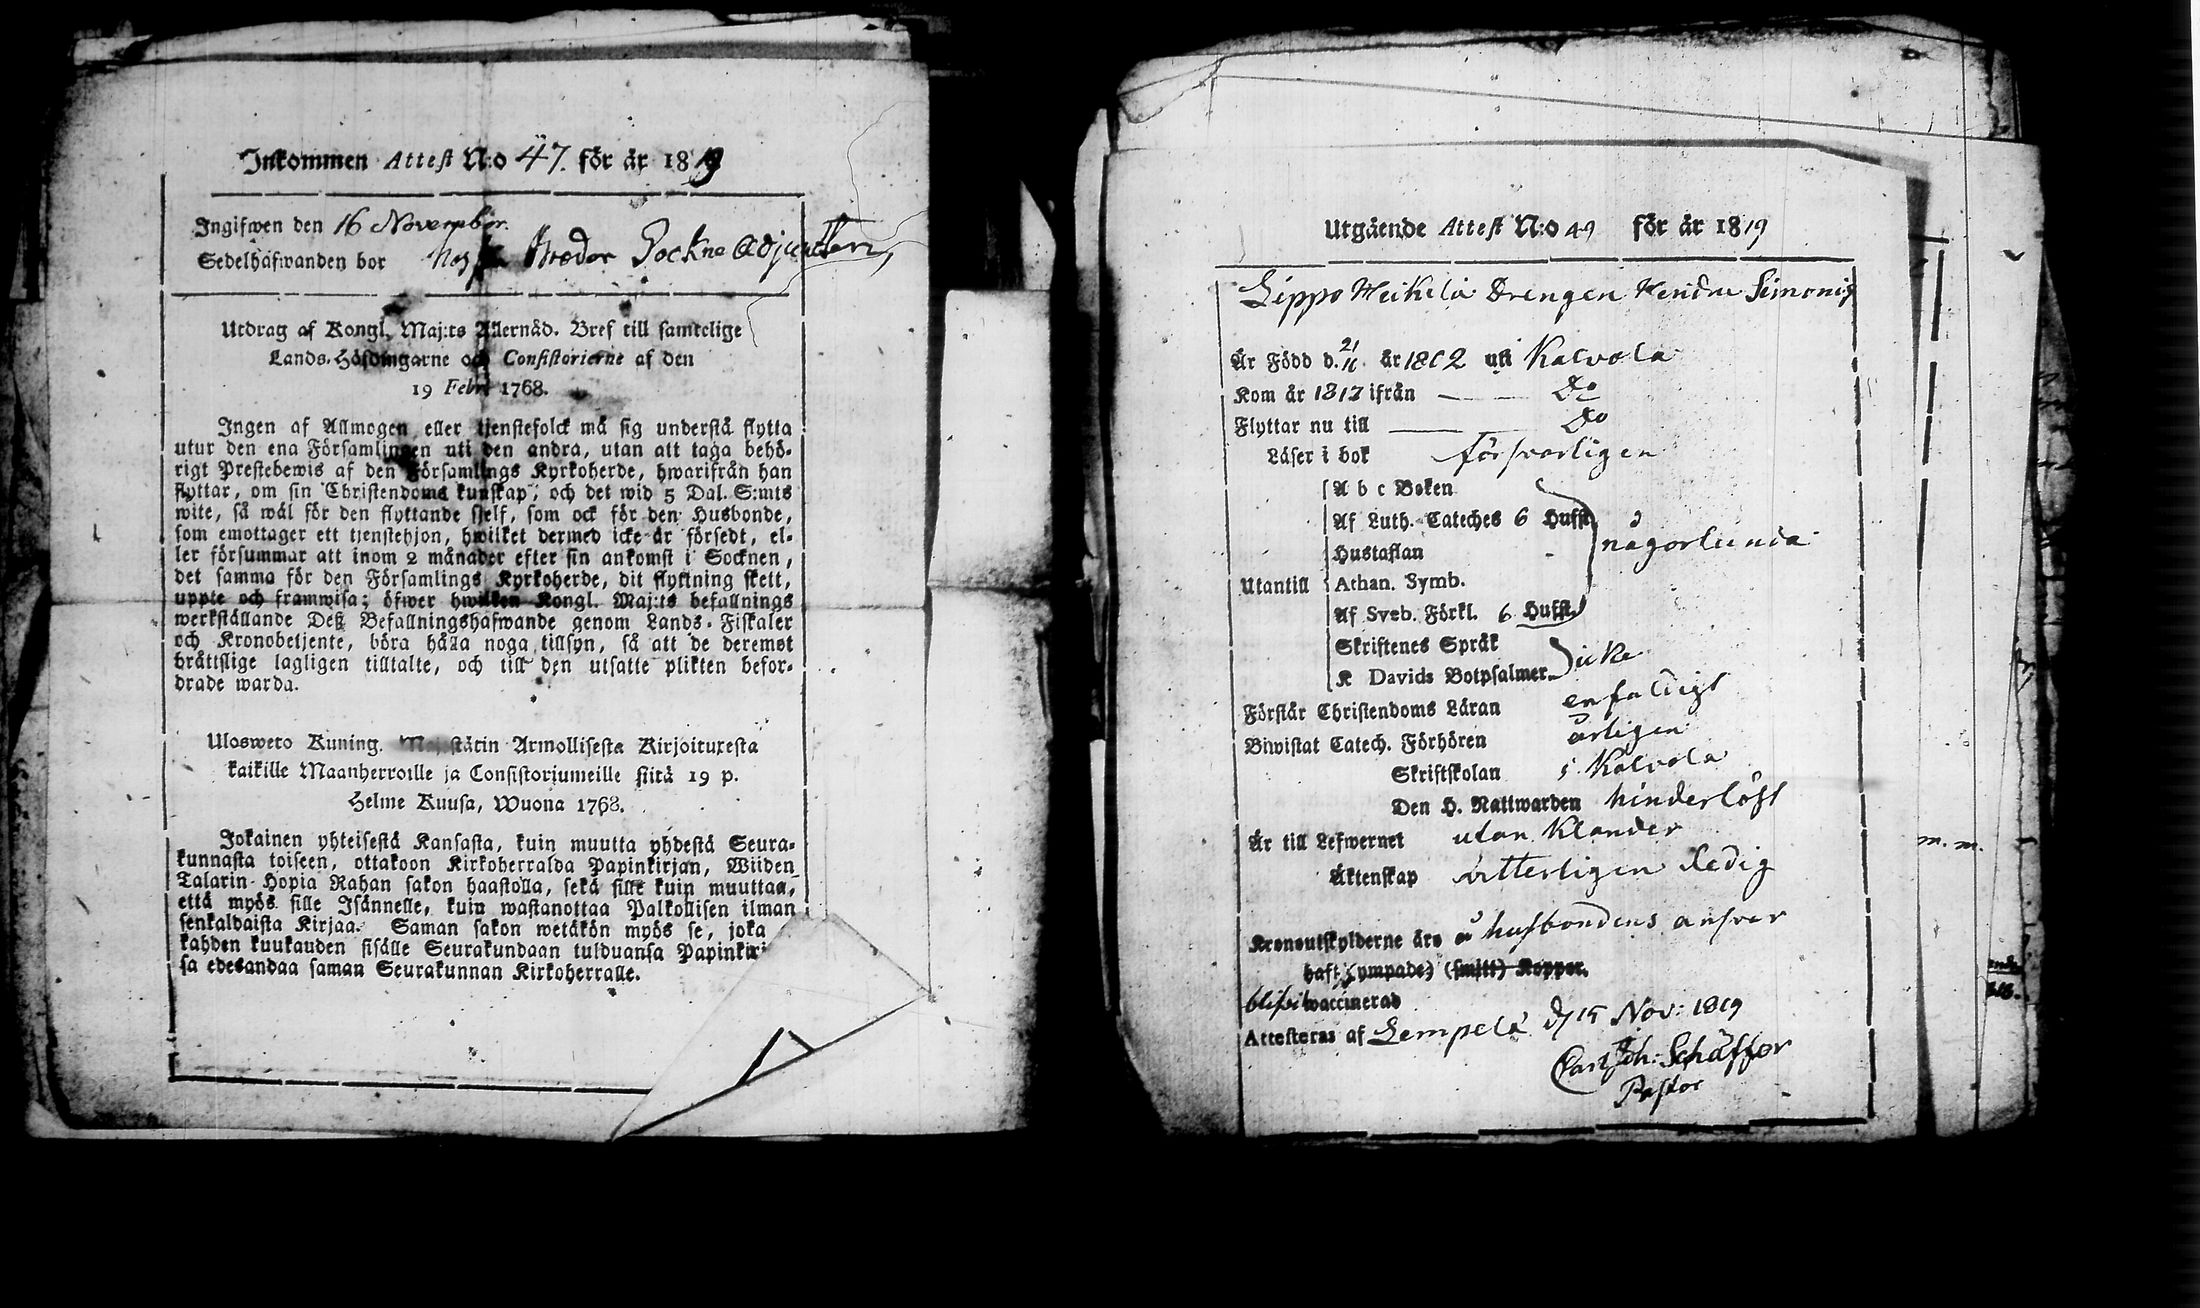 Inkommen Attest N:o 47. för år 1819
Ingifwen den 16 November.
Sedelhäfwanden bor hos Broder Sockne Adjuncten,
Utdrag af Kongl. Maj:ts Allernåd. Bref till samtelige
Lands-Höfdingarne och Consistorierne af den
19 Febr. 1768.
Ingen af Allmogen eller tjenstefolck må sig understå flytta
utur den ena Församlingen uti den andra, utan att taga behö-
rigt Prestebewis af den Församlings Kyrkoherde, hwarifrån han
flyttar, om sin Christendoms kunskap, och det wid 5 Dal. S:mts
wite, så wäl för den flyttande sjelf, som ock för den Husbonde,
som emottager ett tjenstehjon, hwilket dermed icke är försedt, el-
ler försummar att inom 2 månader efter sin ankomst i Socknen,
det samma för den Församlings Kyrkoherde, dit flyttning skett,
uppte och framwisa; öfwer hwilken Kongl. Maj:ts befallnings
werkställande Deß Befallningshafwande genom Lands-Fiskaler
och Kronobetjente, böra hålla noga tillsyn, så att de deremot
bråttslige lagligen tilltalte, och till den utsatte plikten befor-
drade warda.
Ulosweto Kuning. Majestätin Armollisesta Kirjoituxesta
kaikille Maanherroille ja Consistoriumeille siitä 19 p.
Helme Kuusa, Wuona 1768.
Jokainen yhteisestä Kansasta, kuin muutta yhdestä Seura-
kunnasta toiseen, ottakoon Kirkoherralda Papinkirjan, Wiiden
Talarin Hopia Rahan sakon haastolla, sekä sille kuin muuttaa,
että myös sille Isännelle, kuin wastanottaa Palkollisen ilman
senkaldaista Kirjaa. Saman sakon wetäkön myös se, joka
kahden kuukauden sisälle Seurakundaan tulduansa Papinkirj
sa edesandaa saman Seurakunnan Kirkoherralle.
Utgående Attest N:o 49 för år 1819
Lippo Heikilä Drengen Hendric Simonis
Är Född d. 21/11 år 1802 uti Kalvola
Kom år 1817 ifrån Do
Flyttar nu till Do
Läser i bok försvarligen
A b c Boken
Af Luth. Cateches 6 Hufst.
Hustaflan någorlunda
Utantill Athan. Symb.
Af Sveb. Förkl. 6 Hufst.
Skriftenes Språk
K Davids Botpsalmer icke
Förstår Christendoms Läran enfaldigt
Biwistat Catech. Förhören årligen
Skriftskolan i Kalvola
Den H. Nattwarden hinderlöst
Är till Lefwernet utan Klander
Äktenskap vitterligen Ledig
Kronoutskylderne äro å husbondens ansvar
haft (ympade) (smitt) Koppor.
blifvit waccinerad
Attesteras af Lempelä d. 15 Nov: 1819
Carl Joh: Schäffer
Pastor
m. m.